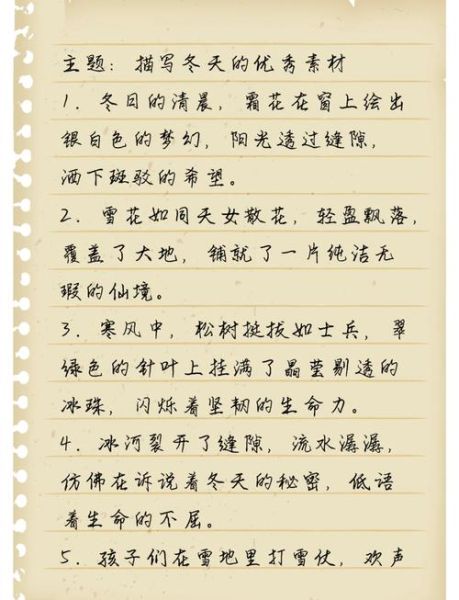 主题：描写冬天的优秀素材
1．冬日的清晨，霜花在窗上绘出
银白色的梦幻，阳光透过缝隙，
洒下斑驳的希望。
2．雪花如同天女散花，轻盈飘落，
覆盖了大地，铺就了一片纯洁无
瑕的仙境。
3．寒风中，松树挺拔如士兵，翠
绿色的针叶上挂满了晶莹剔透的
冰珠，闪烁着坚韧的生命力。
4．冰河裂开了缝隙，流水潺潺，
仿佛在诉说着冬天的秘密，低语
着生命的不屈。
5．孩子们在雪地里打雪仗，欢声